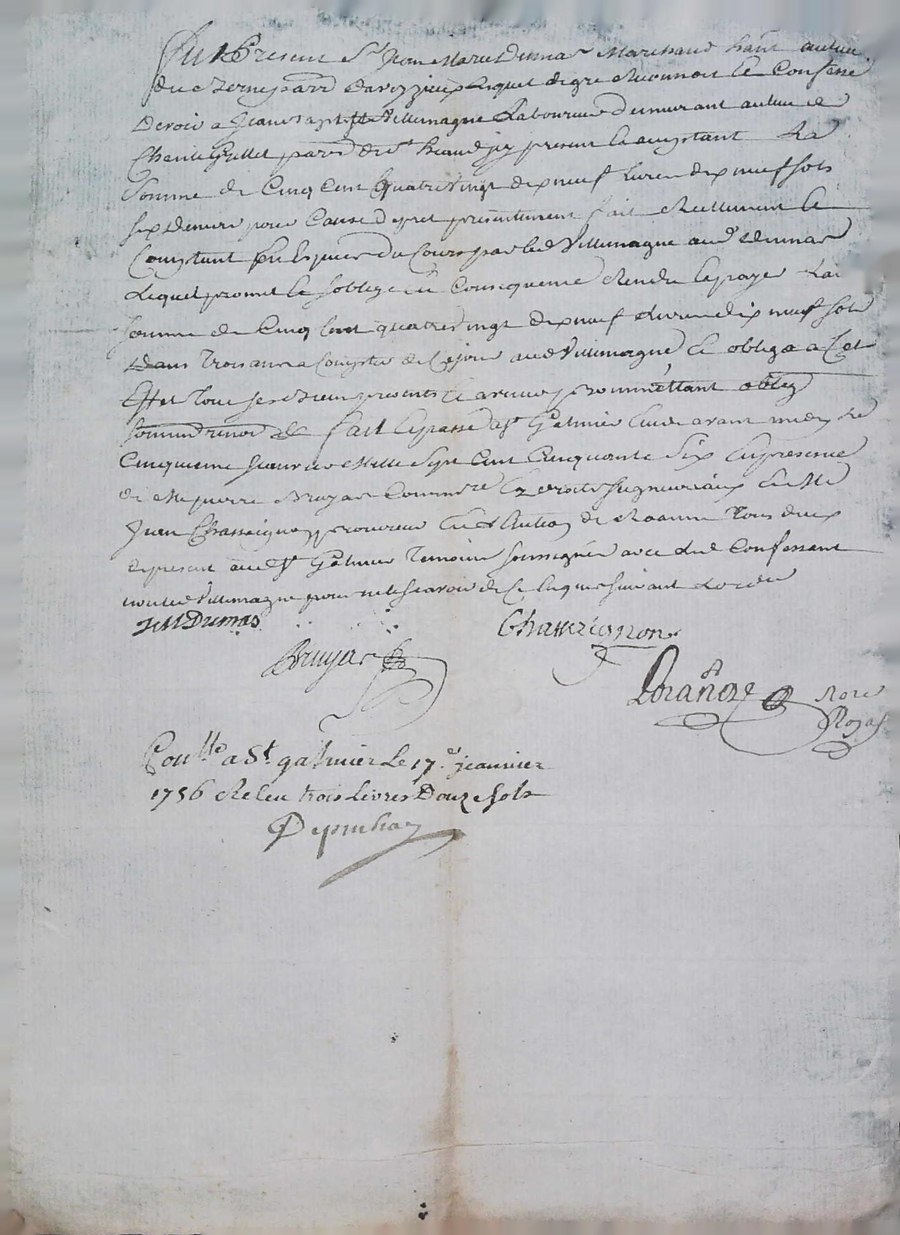 Fut Present Sr Jean Marie Dumas Marchand hant au lieu
du Verney parr davezieux Lequel de gré Reconnoit et Confesse
Devoir a Jean Baptiste Villemagne Laboureur Demeurant au lieu de
parr de St present et acceptant La
Somme de Cinq Cent quatre vingt dix neuf livres dix neuf sols
six deniers pour Cause de pret presentement fait Reellement et
Comptant En Especes du Cours par led Villemagne aud Sr Dumas
Lequel promet et soblige En Consequence Rendre et payer La
somme de Cinq Cent quatre vingt dix neuf Livres dix neuf sols
Dans trois ans a Compter de Ce jour aud Villemagne Et obligé a Cet
Effet Tous ses biens presents et avenir promettant oblig
fait et passé a St Galmier Etude avant midy Le
Cinquieme Janvier Mille Sept Cent Cinquante Six En presence
de Me pierre Bruyas Commre Ez droits seigneuriaux Et Me
Jean Chasseignon procureur En de Roanne Tous deux
de present aud St Galmier Temoins soussignés avec Led Confessant
non led Villemagne pour ne le scavoir de Ce Enquis suivant Lord
JM Dumas
Chasseignon
Bruyas
Nore
Royal
Conllé a St galmier Le 17e jeanvier
1756 Receu trois Livres Douze sols